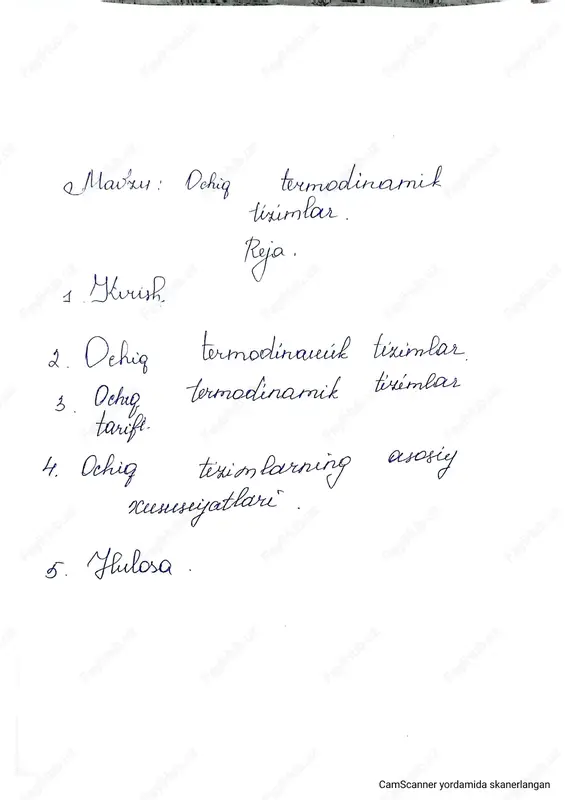 Mavzu: Ochiq termodinamik
tizimlar.
Reja.
1. Kirish.
2. Ochiq termodinamik tizimlar.
3. Ochiq termodinamik tizimlar
tarifi.
4. Ochiq tizimlarning asosiy
xususiyatlari.
5. Hulosa.
CamScanner yordamida skanerlangan